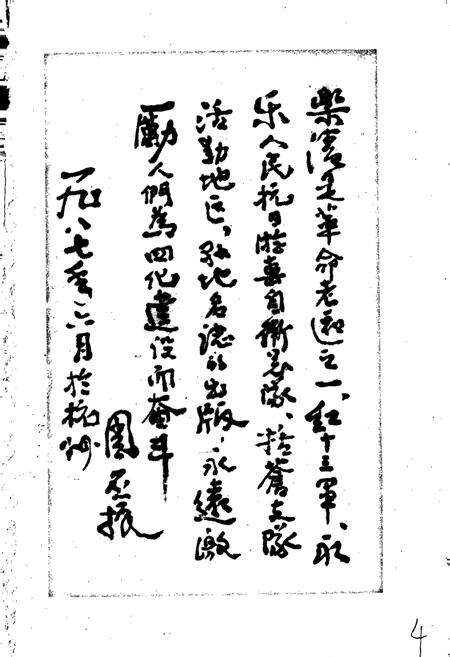 樂清是革命老區之一、紅十三軍、永
乐人民抗日游擊自衛總隊、括蒼支隊
活動地区，縣地名誌的出版，永遠激
勵人們為四化建设而奮斗
一九八七年六月於杭州
周丕振
4